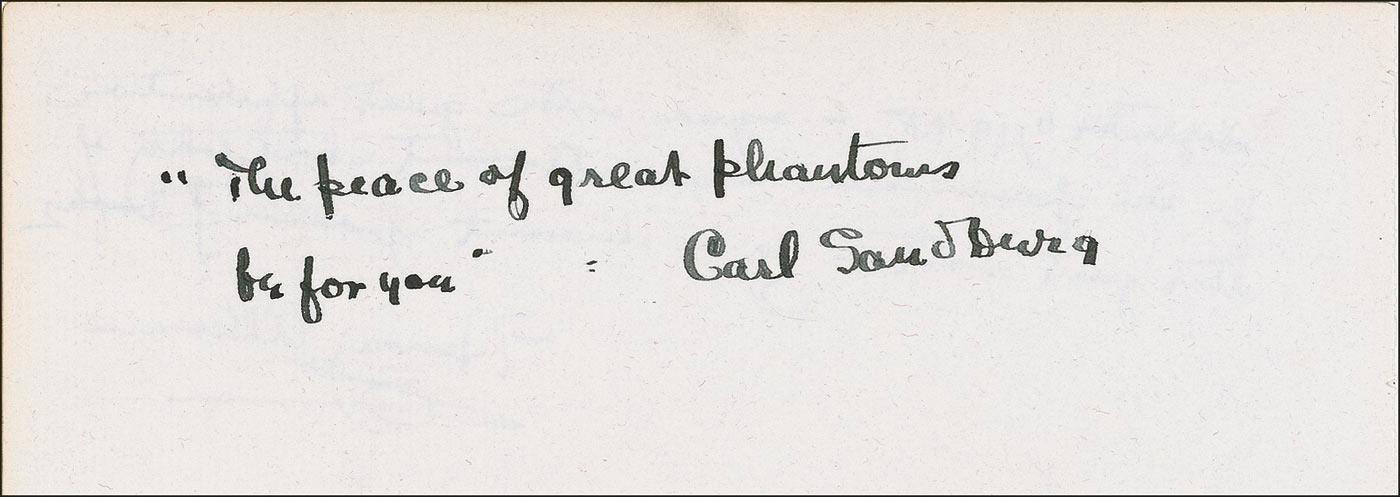 "The peace of great phantoms
be for you" : Carl Sandburg